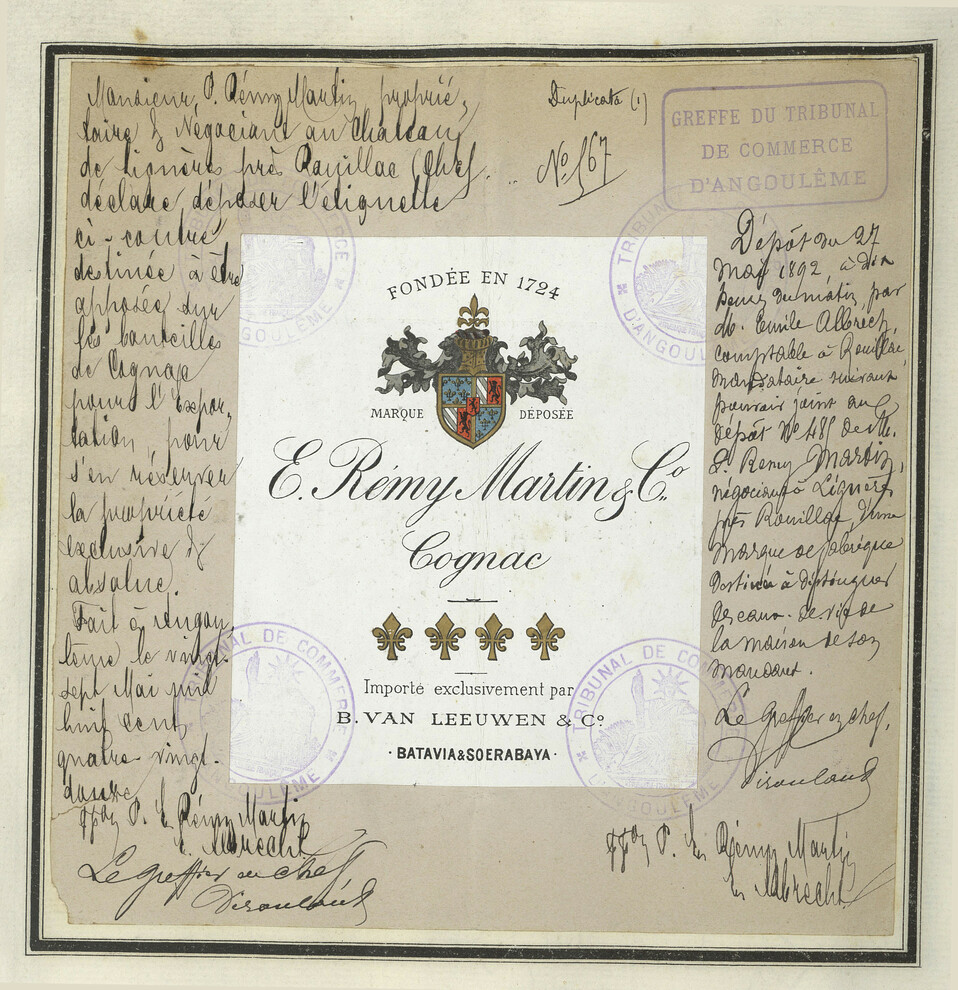 Monsieur P. Rémy Martin, proprié-
taire & Négociant au Château
de Lignères près Rouillac (Chte)
déclare déposer l'étiquette
ci-contre
destinée à être
apposée sur
les bouteilles
de Cognac
pour l'Expor-
tation, pour
s'en réserver
la propriété
exclusive &
absolue.
Fait à Angou-
lême le vingt-
sept Mai mil
huit cent
quatre vingt-
douze
P. E. Rémy Martin
E. Albrecht
Le greffier en chef
Duplicata (1)
No. 167
GREFFE DU TRIBUNAL
DE COMMERCE
D'ANGOULÊME
Dépôt du 27
Mai 1892, à dix
heures du matin, par
M. Emile Albrecht,
comptable à Rouillac,
mandataire suivant
pouvoir joint au
dépôt No 485 de M.
P. Rémy Martin,
négociant à Lignères
près Rouillac, d'une
marque de fabrique
destinée à distinguer
des eaux-de-vie de
la maison de son
mandant.
Le Greffier en chef,
P. E. Rémy Martin
E. Albrecht
FONDÉE EN 1724
MARQUE DÉPOSÉE
E. Rémy Martin & Co.
Cognac
Importé exclusivement par
B. VAN LEEUWEN & Co
· BATAVIA & SOERABAYA ·
TRIBUNAL DE COMMERCE
D'ANGOULÊME